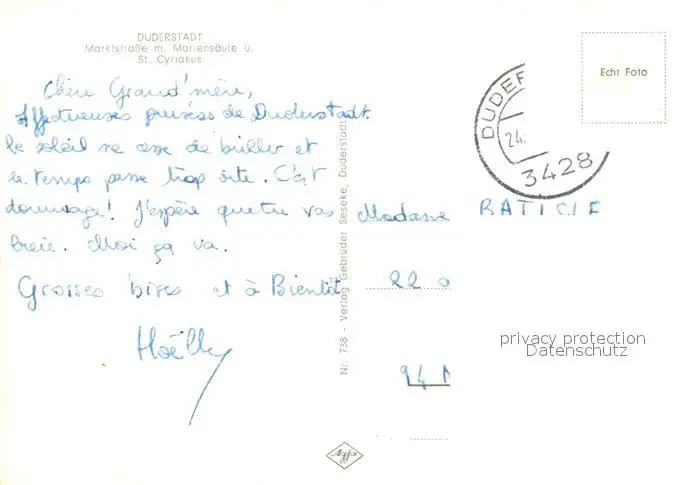 DUDERSTADT
Marktstraße m. Mariensäule u.
St. Cyriakus
Echt Foto
DUDER
24.
3428
Chère Grand'mère,
Affectueuses pensées de Duderstadt.
Le soleil ne cesse de briller et
le temps passe trop vite. C'est
dommage! J'espère que tu vas
bien. Moi ça va.
Grosses bises et à Bientôt
Madame
22
94
Nr. 738 - Verlag Gebrüder Seseke, Duderstadt
Agfa
privacy protection
Datenschutz